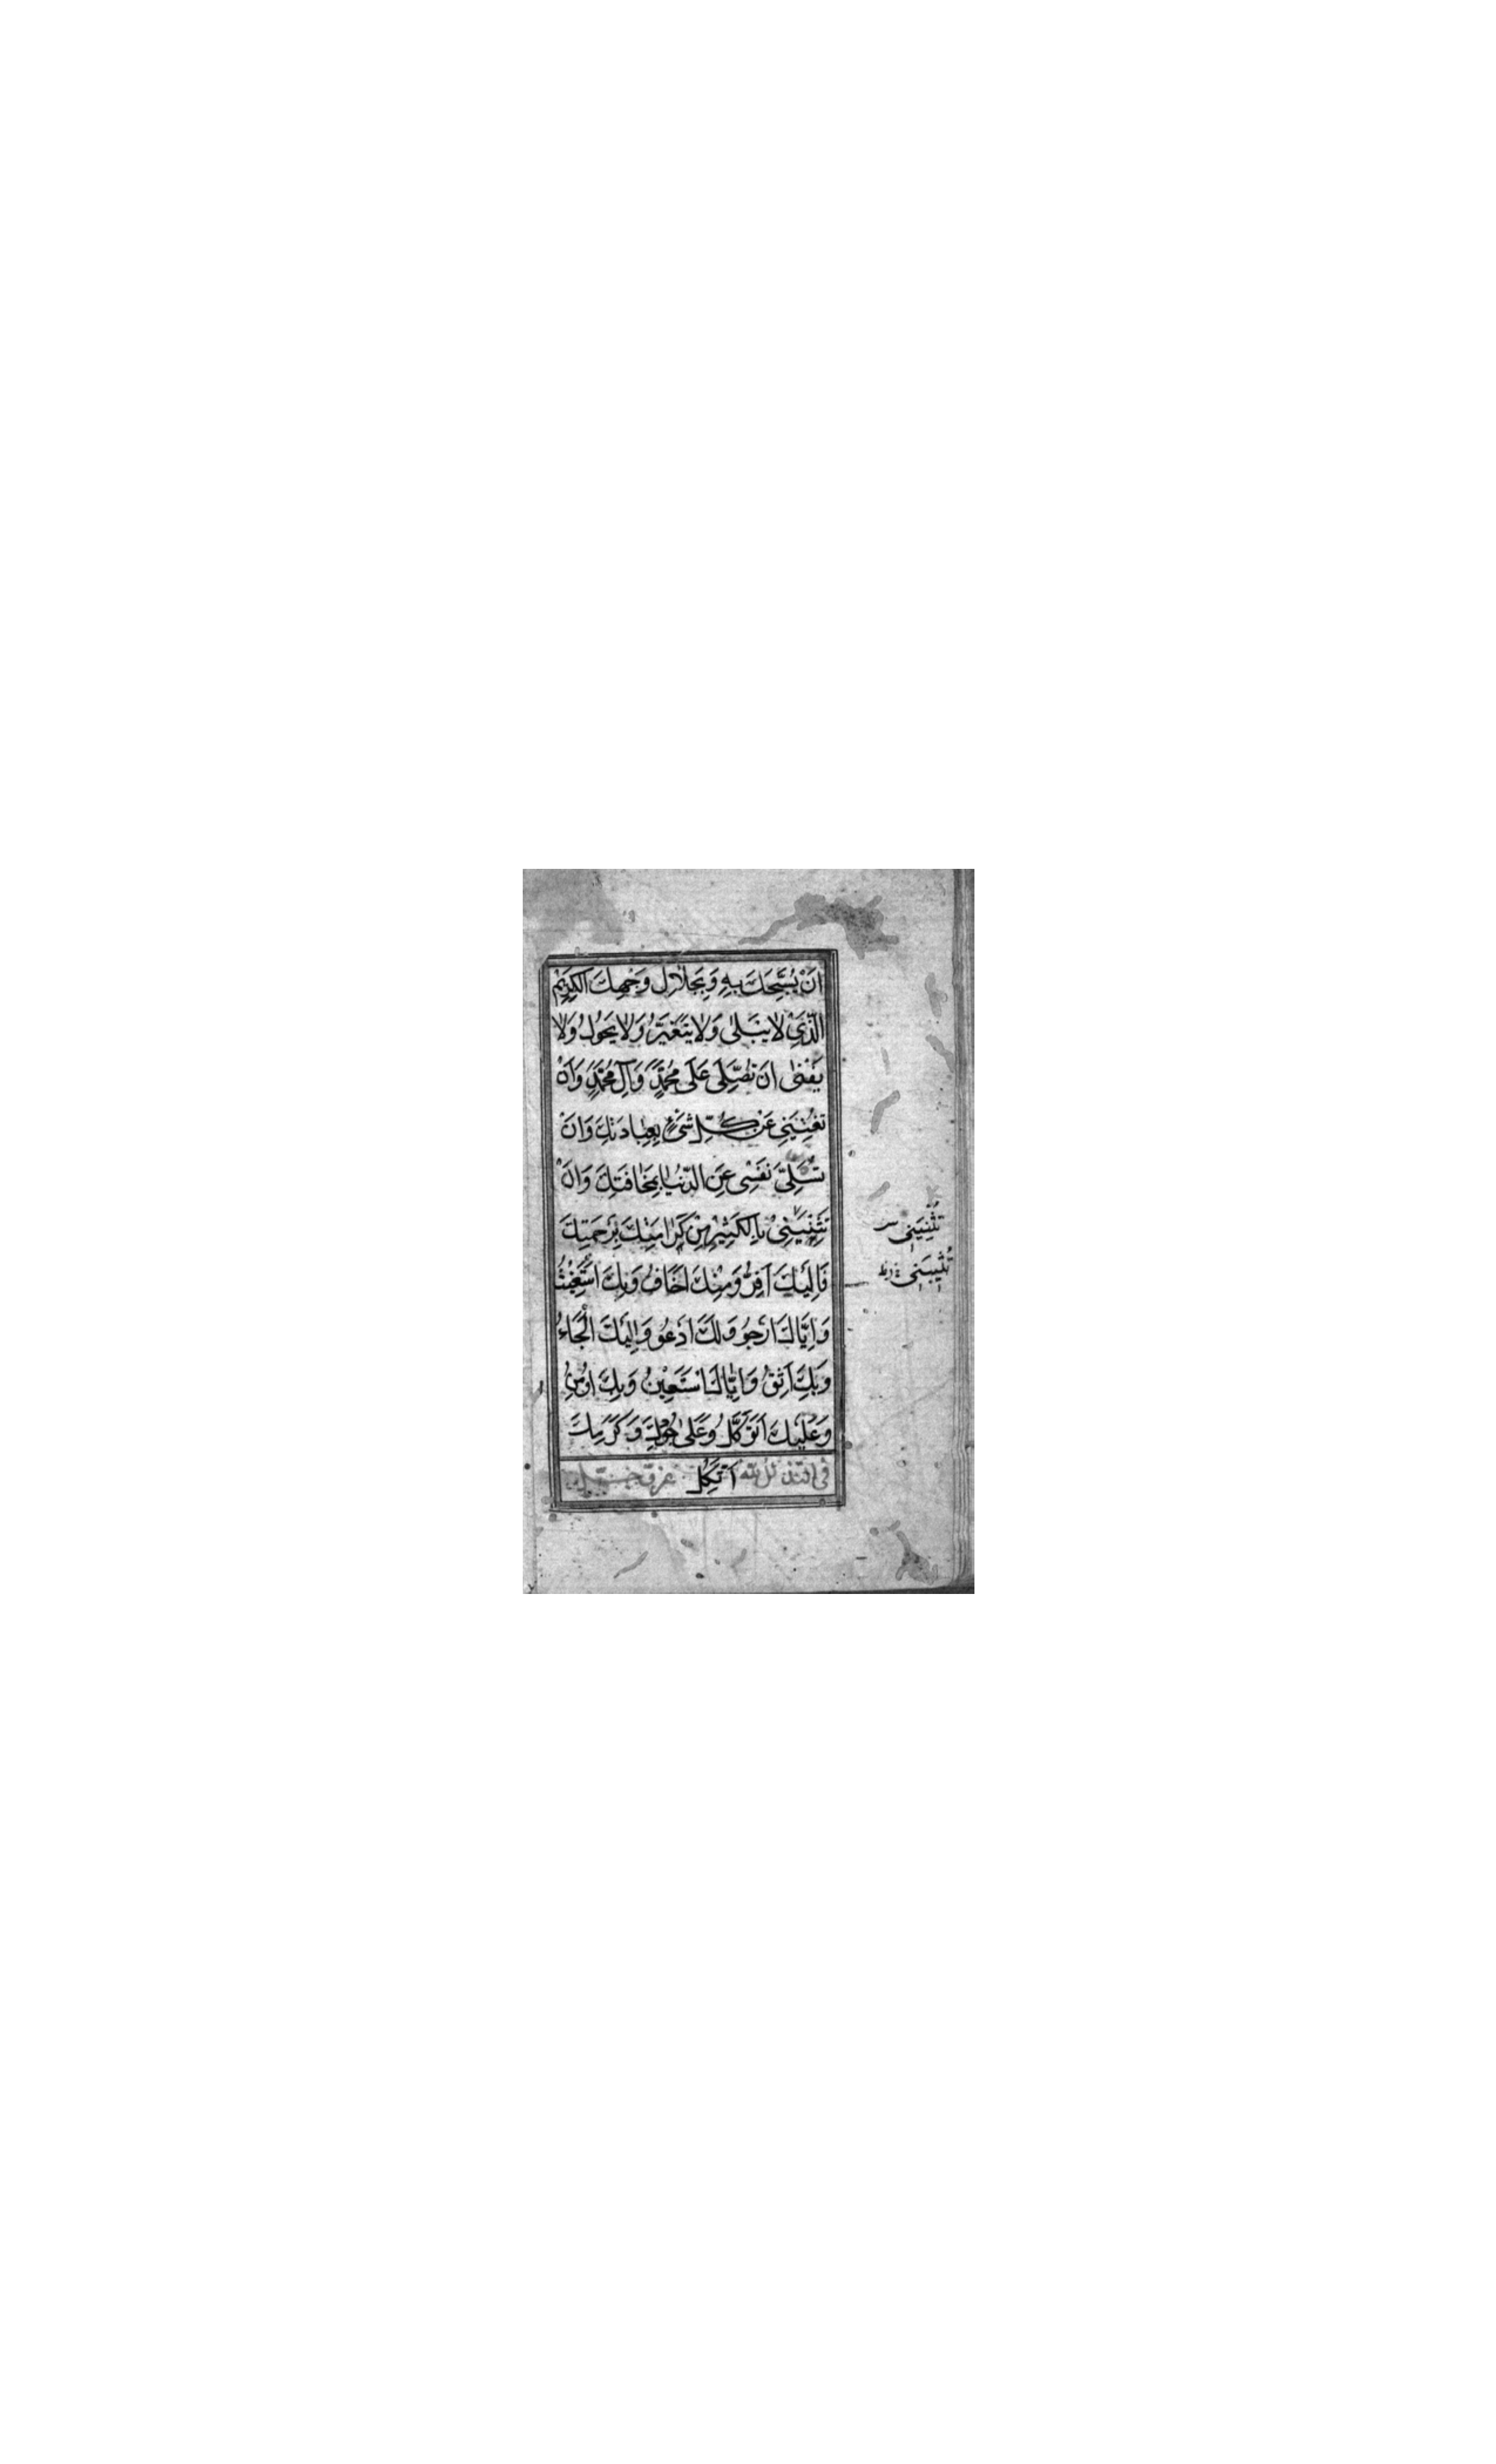 اَنْ يُسَبِّحَكَ بِهِ وَبِجَلَالِ وَجْهِكَ الْكَرِيْمِ
الَّذِيْ لَا يَبْلٰى وَلَا يَتَغَيَّرُ وَلَا يَحُوْلُ وَلَا
يَفْنٰى اَنْ تُصَلِّيَ عَلٰى مُحَمَّدٍ وَآلِ مُحَمَّدٍ وَاَنْ
تُغْنِيَنِيْ عَنْ كُلِّ شَيْءٍ بِعِبَادَتِكَ وَاَنْ
تُسَلِّيَ نَفْسِيْ عَنِ الدُّنْيَا بِمَخَافَتِكَ وَاَنْ
تُثْنِيَنِيْ بِالْكَثِيْرِ مِنْ كَرَامَتِكَ بِرَحْمَتِكَ
فَاِلَيْكَ اَفِرُّ وَمِنْكَ اَخَافُ وَبِكَ اَسْتَغِيْثُ
وَاِيَّاكَ اَرْجُوْ وَلَكَ اَدْعُوْ وَاِلَيْكَ اَلْجَاءُ
وَبِكَ اَثِقُ وَاِيَّاكَ اَسْتَعِيْنُ وَبِكَ اُوْمِنُ
وَعَلَيْكَ اَتَوَكَّلُ وَعَلٰى جُوْدِكَ وَكَرَمِكَ
اَتَّكِلُ
تُثْنِيَنِي
تُثِيْبَنِي